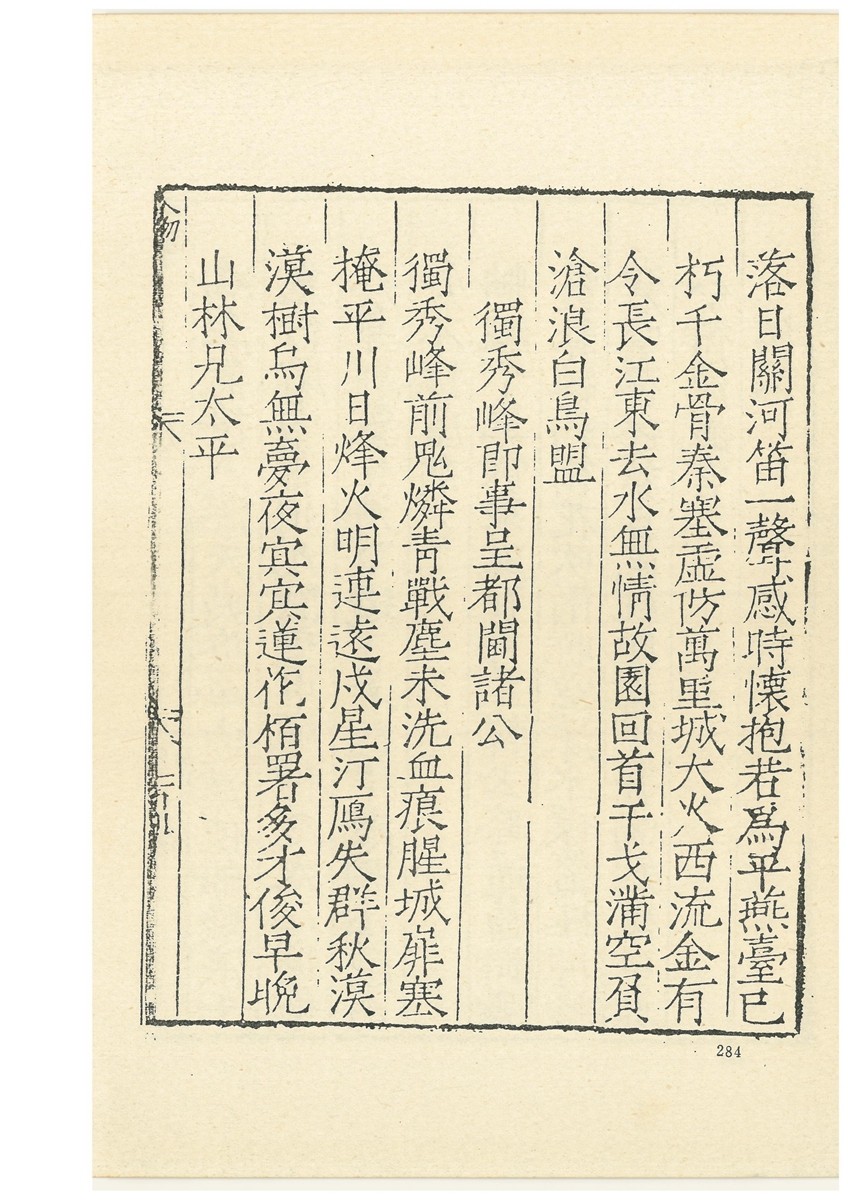 落日關河笛一聲感時懷抱若爲平燕臺已
朽千金骨秦塞虛仿萬里城大火西流金有
令長江東去水無情故園回首干戈滿空負
滄浪白鳥盟
獨秀峰即事呈都閫諸公
獨秀峰前鬼燐青戰塵未洗血痕腥城扉塞
掩平川日烽火明連遠戍星汀鴈失群秋漠
漠樹烏無夢夜冥冥蓮作栢署多才俊早晚
山林見太平
284